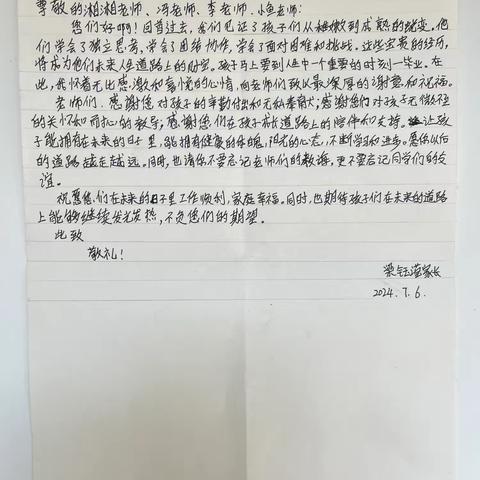 尊敬的湘湘老师、冯老师、李老师、小鱼老师:
您们好啊!回首过去,我们见证了孩子们从稚嫩到成熟的蜕变。他
们学会了独立思考,学会了团结协作,学会了面对困难和挑战。这些宝贵的经历,
将成为他们未来人生道路上的财富。孩子马上要到人生中一个重要的时刻—毕业。在
此,我怀着无比感激和喜悦的心情,向老师们致以最深厚的谢意和祝福。
老师们,感谢您对孩子的辛勤付出和无私奉献;感谢您们对孩子无微不至
的关怀和耐心的教导;感谢您们在孩子成长道路上的陪伴和支持。让孩
子能拥有在未来的日子里,能拥有健康的体魄,阳光的心态,不断学习和进步。愿你以后
的道路越走越远。同时,也请你不要忘记老师们的教诲,更不要忘记同学们的友
谊。
祝愿您们在未来的日子里工作顺利,家庭幸福。同时,也期待孩子们在未来的道路
上能够继续发光发热,不负您们的期望。
此致
敬礼!
家长
2024.7.6.